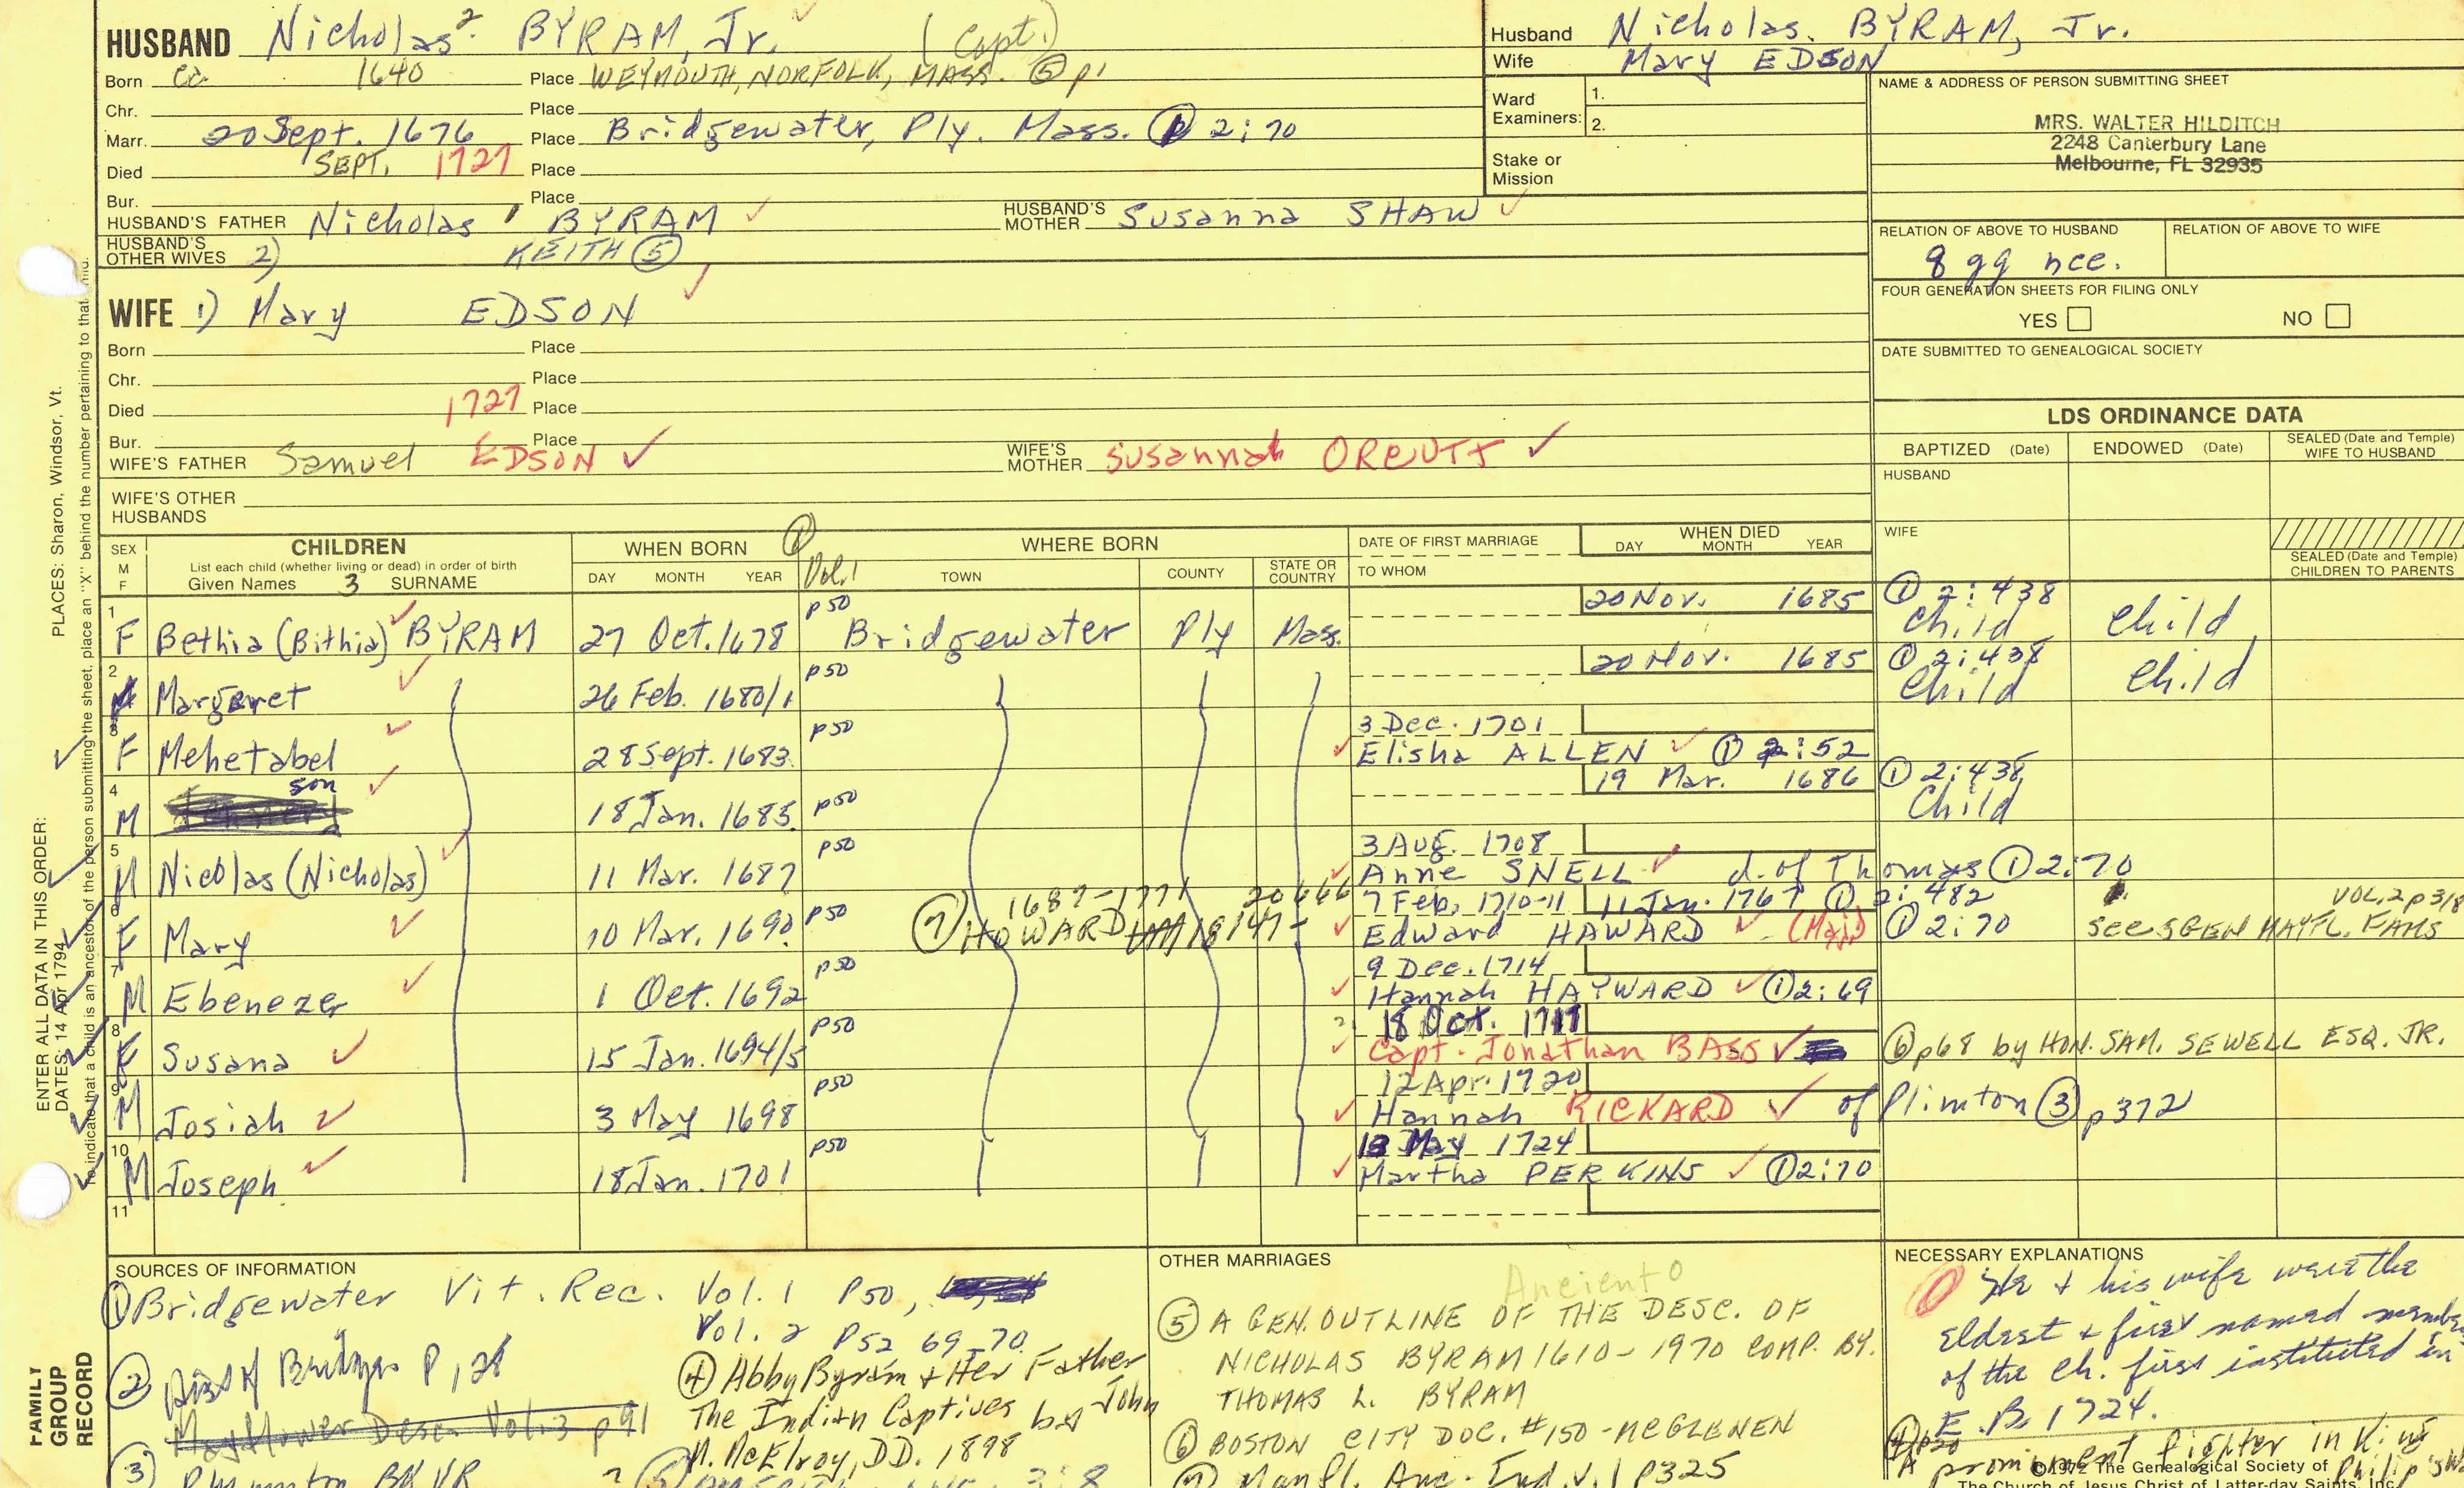 HUSBAND Nicholas 2 BYRAM, Jr. (Capt.)
Born ca 1640 Place WEYMOUTH, NORFOLK, MASS. ⑤ p1
Chr. Place
Marr. 20 Sept. 1676 Place Bridgewater, Ply. Mass. ① 2:70
Died SEPT. 1727 Place
Bur. Place
HUSBAND'S FATHER Nicholas 1 BYRAM HUSBAND'S MOTHER Susanna SHAW
HUSBAND'S OTHER WIVES 2) KEITH ⑤
WIFE 1) Mary EDSON
Born Place
Chr. Place
Died 1727 Place
Bur. Place
WIFE'S FATHER Samuel EDSON WIFE'S MOTHER Susannah ORCUTT
WIFE'S OTHER HUSBANDS
Husband Nicholas BYRAM, Jr.
Wife Mary EDSON
Ward Examiners: 1.
2.
Stake or Mission
NAME & ADDRESS OF PERSON SUBMITTING SHEET
MRS. WALTER HILDITCH
2248 Canterbury Lane
Melbourne, FL 32935
RELATION OF ABOVE TO HUSBAND RELATION OF ABOVE TO WIFE
8 gg nce.
FOUR GENERATION SHEETS FOR FILING ONLY
YES NO
DATE SUBMITTED TO GENEALOGICAL SOCIETY
LDS ORDINANCE DATA
BAPTIZED (Date) ENDOWED (Date) SEALED (Date and Temple) WIFE TO HUSBAND
HUSBAND
WIFE
SEALED (Date and Temple) CHILDREN TO PARENTS
SEX M F CHILDREN WHEN BORN ① WHERE BORN DATE OF FIRST MARRIAGE WHEN DIED
List each child (whether living or dead) in order of birth DAY MONTH YEAR
Given Names 3 SURNAME DAY MONTH YEAR Vol. 1 TOWN COUNTY STATE OR COUNTRY TO WHOM
1 p50 20 Nov. 1685 ① 2:438
F Bethia (Bithia) BYRAM 27 Oct. 1678 Bridgewater Ply Mass. Child Child
2 p50 20 Nov. 1685 ① 2:438
Margeret 26 Feb. 1680/1 Child Child
3 p50 3 Dec. 1701
F Mehetabel 28 Sept. 1683 Elisha ALLEN ① 2:52
4 son p50 19 Mar. 1686 ① 2:438
M 18 Jan. 1685 Child
5 p50 3 Aug. 1708
M Nicolas (Nicholas) 11 Mar. 1687 Anne SNELL d. of Thomas ① 2:70
6 p50 1687-1771 20666 7 Feb. 1710-11 11 Jan. 1767 ① 2:482 VOL. 2 p318
F Mary 10 Mar. 1690 ⑦ HOWARD 18147- Edward HAWARD (Maj) ① 2:70 see 5GEN MAYFL. FAMS
7 p50 9 Dec. 1714
M Ebenezer 1 Oct. 1692 Hannah HAYWARD ① 2:69
8 p50 18 Oct. 1717
F Susana 15 Jan. 1694/5 Capt. Jonathan BASS ⑥ p68 by HON. SAM. SEWELL ESQ. JR.
9 p50 12 Apr. 1720
M Josiah 3 May 1698 Hannah RICKARD of Plimton ③ p372
10 p50 May 1724
M Joseph 18 Jan. 1701 Martha PERKINS ① 2:70
11
SOURCES OF INFORMATION
① Bridgewater Vit. Rec. Vol. 1 P50,
Vol. 2 P52 69-70
② Hist of Bridge P 128
Mayflower Desc. Vol. 3 p91
③
④ Abby Byram + Her Father
The Indian Captives by John
M. McElroy, DD. 1898
OTHER MARRIAGES
Ancient
⑤ A GEN. OUTLINE OF THE DESC. OF
NICHOLAS BYRAM 1610-1970 COMP. BY.
THOMAS L. BYRAM
⑥ BOSTON CITY DOC. #150 - MCGLENEN
⑦ Manfl. Anc. Ind. v. 1 p325
NECESSARY EXPLANATIONS
He + his wife were the
eldest + first named
of the Ch. first instituted in
E. B. 1724.
A prominent fighter in King Philip's
©1972 The Genealogical Society of
The Church of Jesus Christ of Latter-day Saints, Inc.
PLACES: Sharon, Windsor, Vt.
ENTER ALL DATA IN THIS ORDER:
DATES: 14 Apr 1794
To indicate that a child is an ancestor of the person submitting the sheet, place an "X" behind the number pertaining to that
FAMILY GROUP RECORD